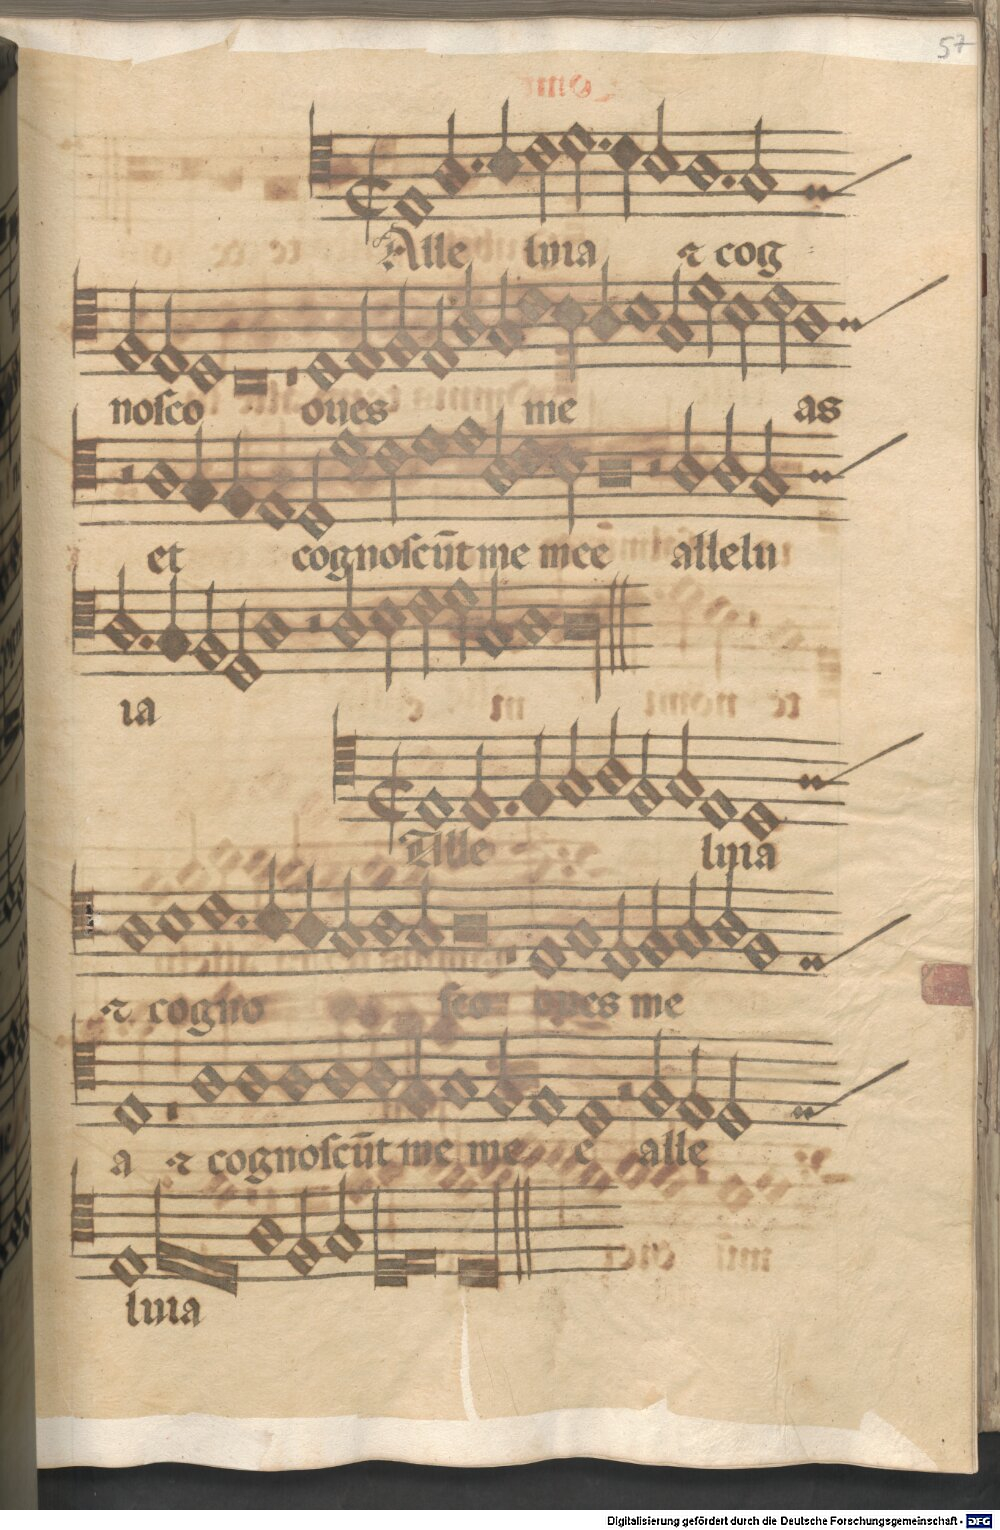 57
Alle luia ꝛ cog
noſco oues me as
et cognoſcūt me mee allelu
ia
Alle luia
ꝛ cogno ſco oues me
a ꝛ cognoſcūt me me e alle
luia
Digitalisierung gefördert durch die Deutsche Forschungsgemeinschaft - DFG